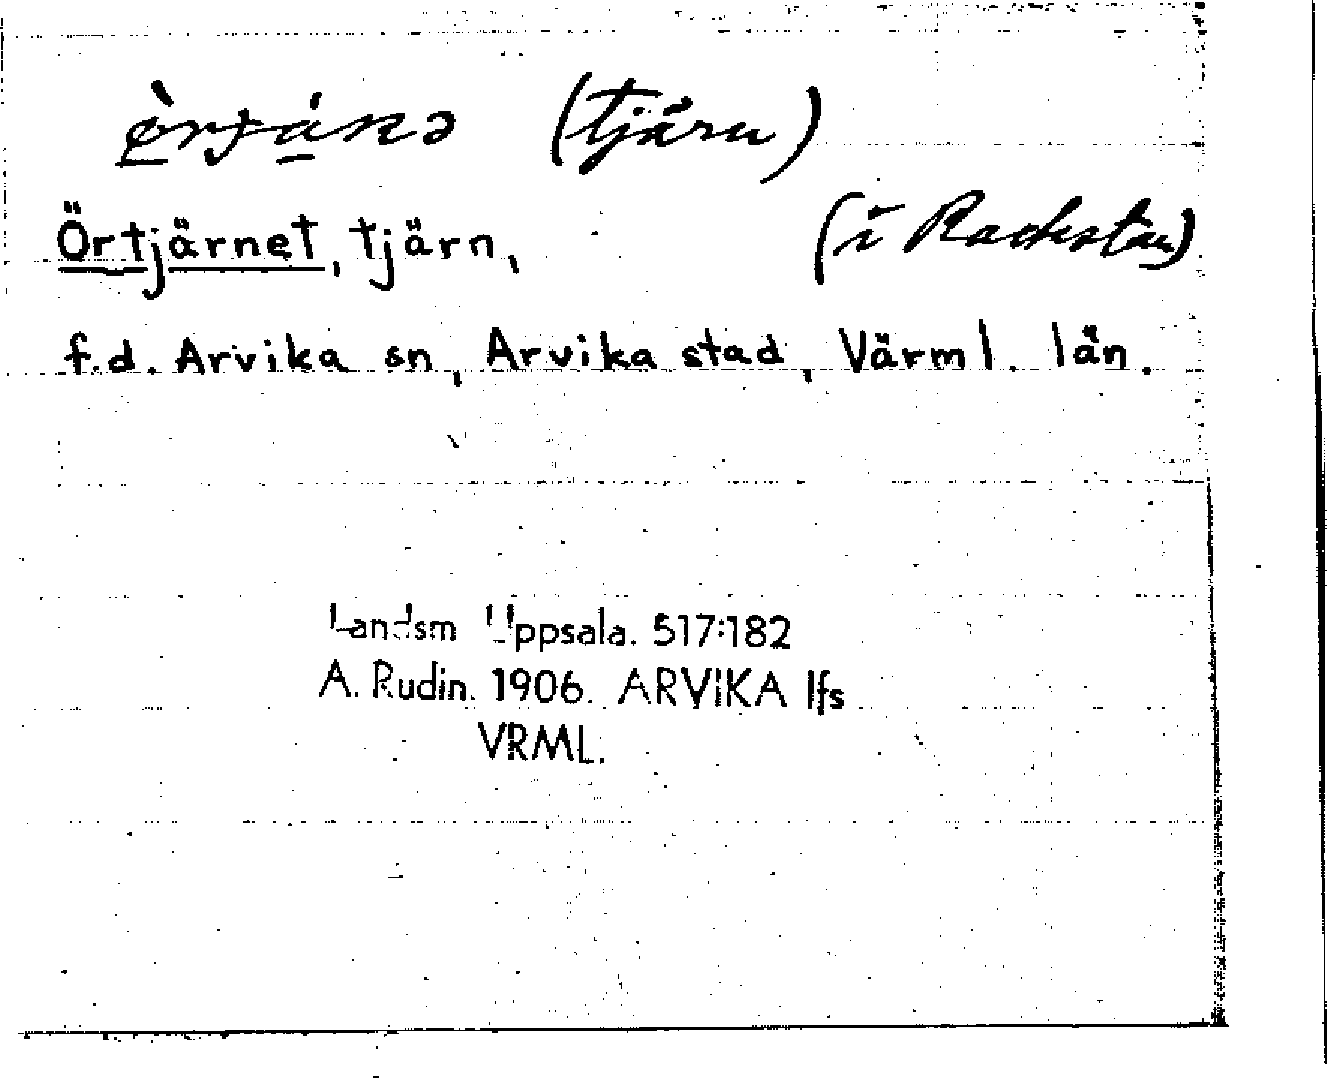 (tjärn)
Örtjärnet, tjärn, (i Rackstan)
f.d. Arvika sn, Arvika stad, Värml. län.
Landsm Uppsala. 517:182
A. Rudin. 1906. ARVIKA lfs
VRML.